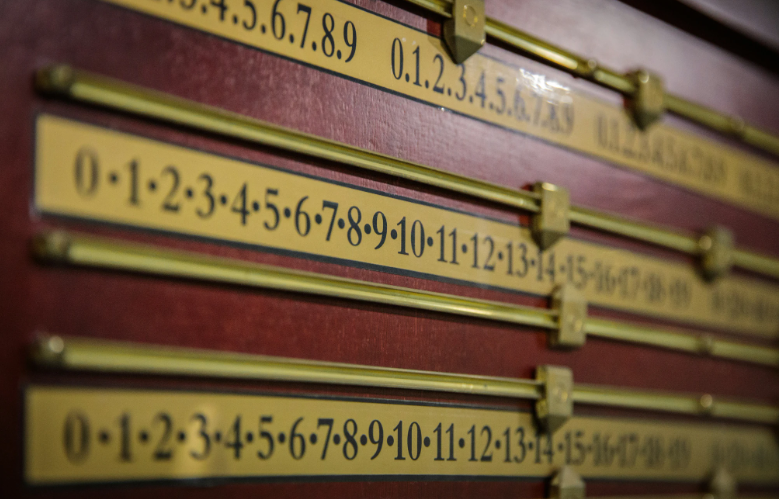 .3.4.5.6.7.8.9 0.1.2.3.4.5.6.7.8.9 0.1.2.3.4.5.6.7.8.9
0·1·2·3·4·5·6·7·8·9·10·11·12·13·14·15·16·17·18·19
0·1·2·3·4·5·6·7·8·9·10·11·12·13·14·15·16·17·18·19